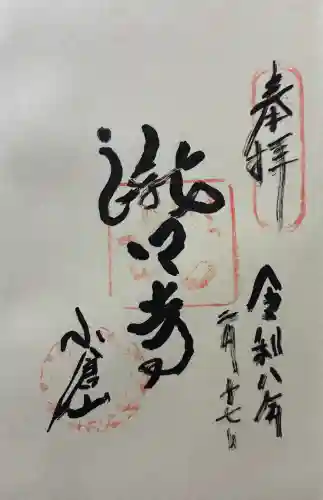 奉拝
令和八年
二月十七日
瀧口寺
小倉山